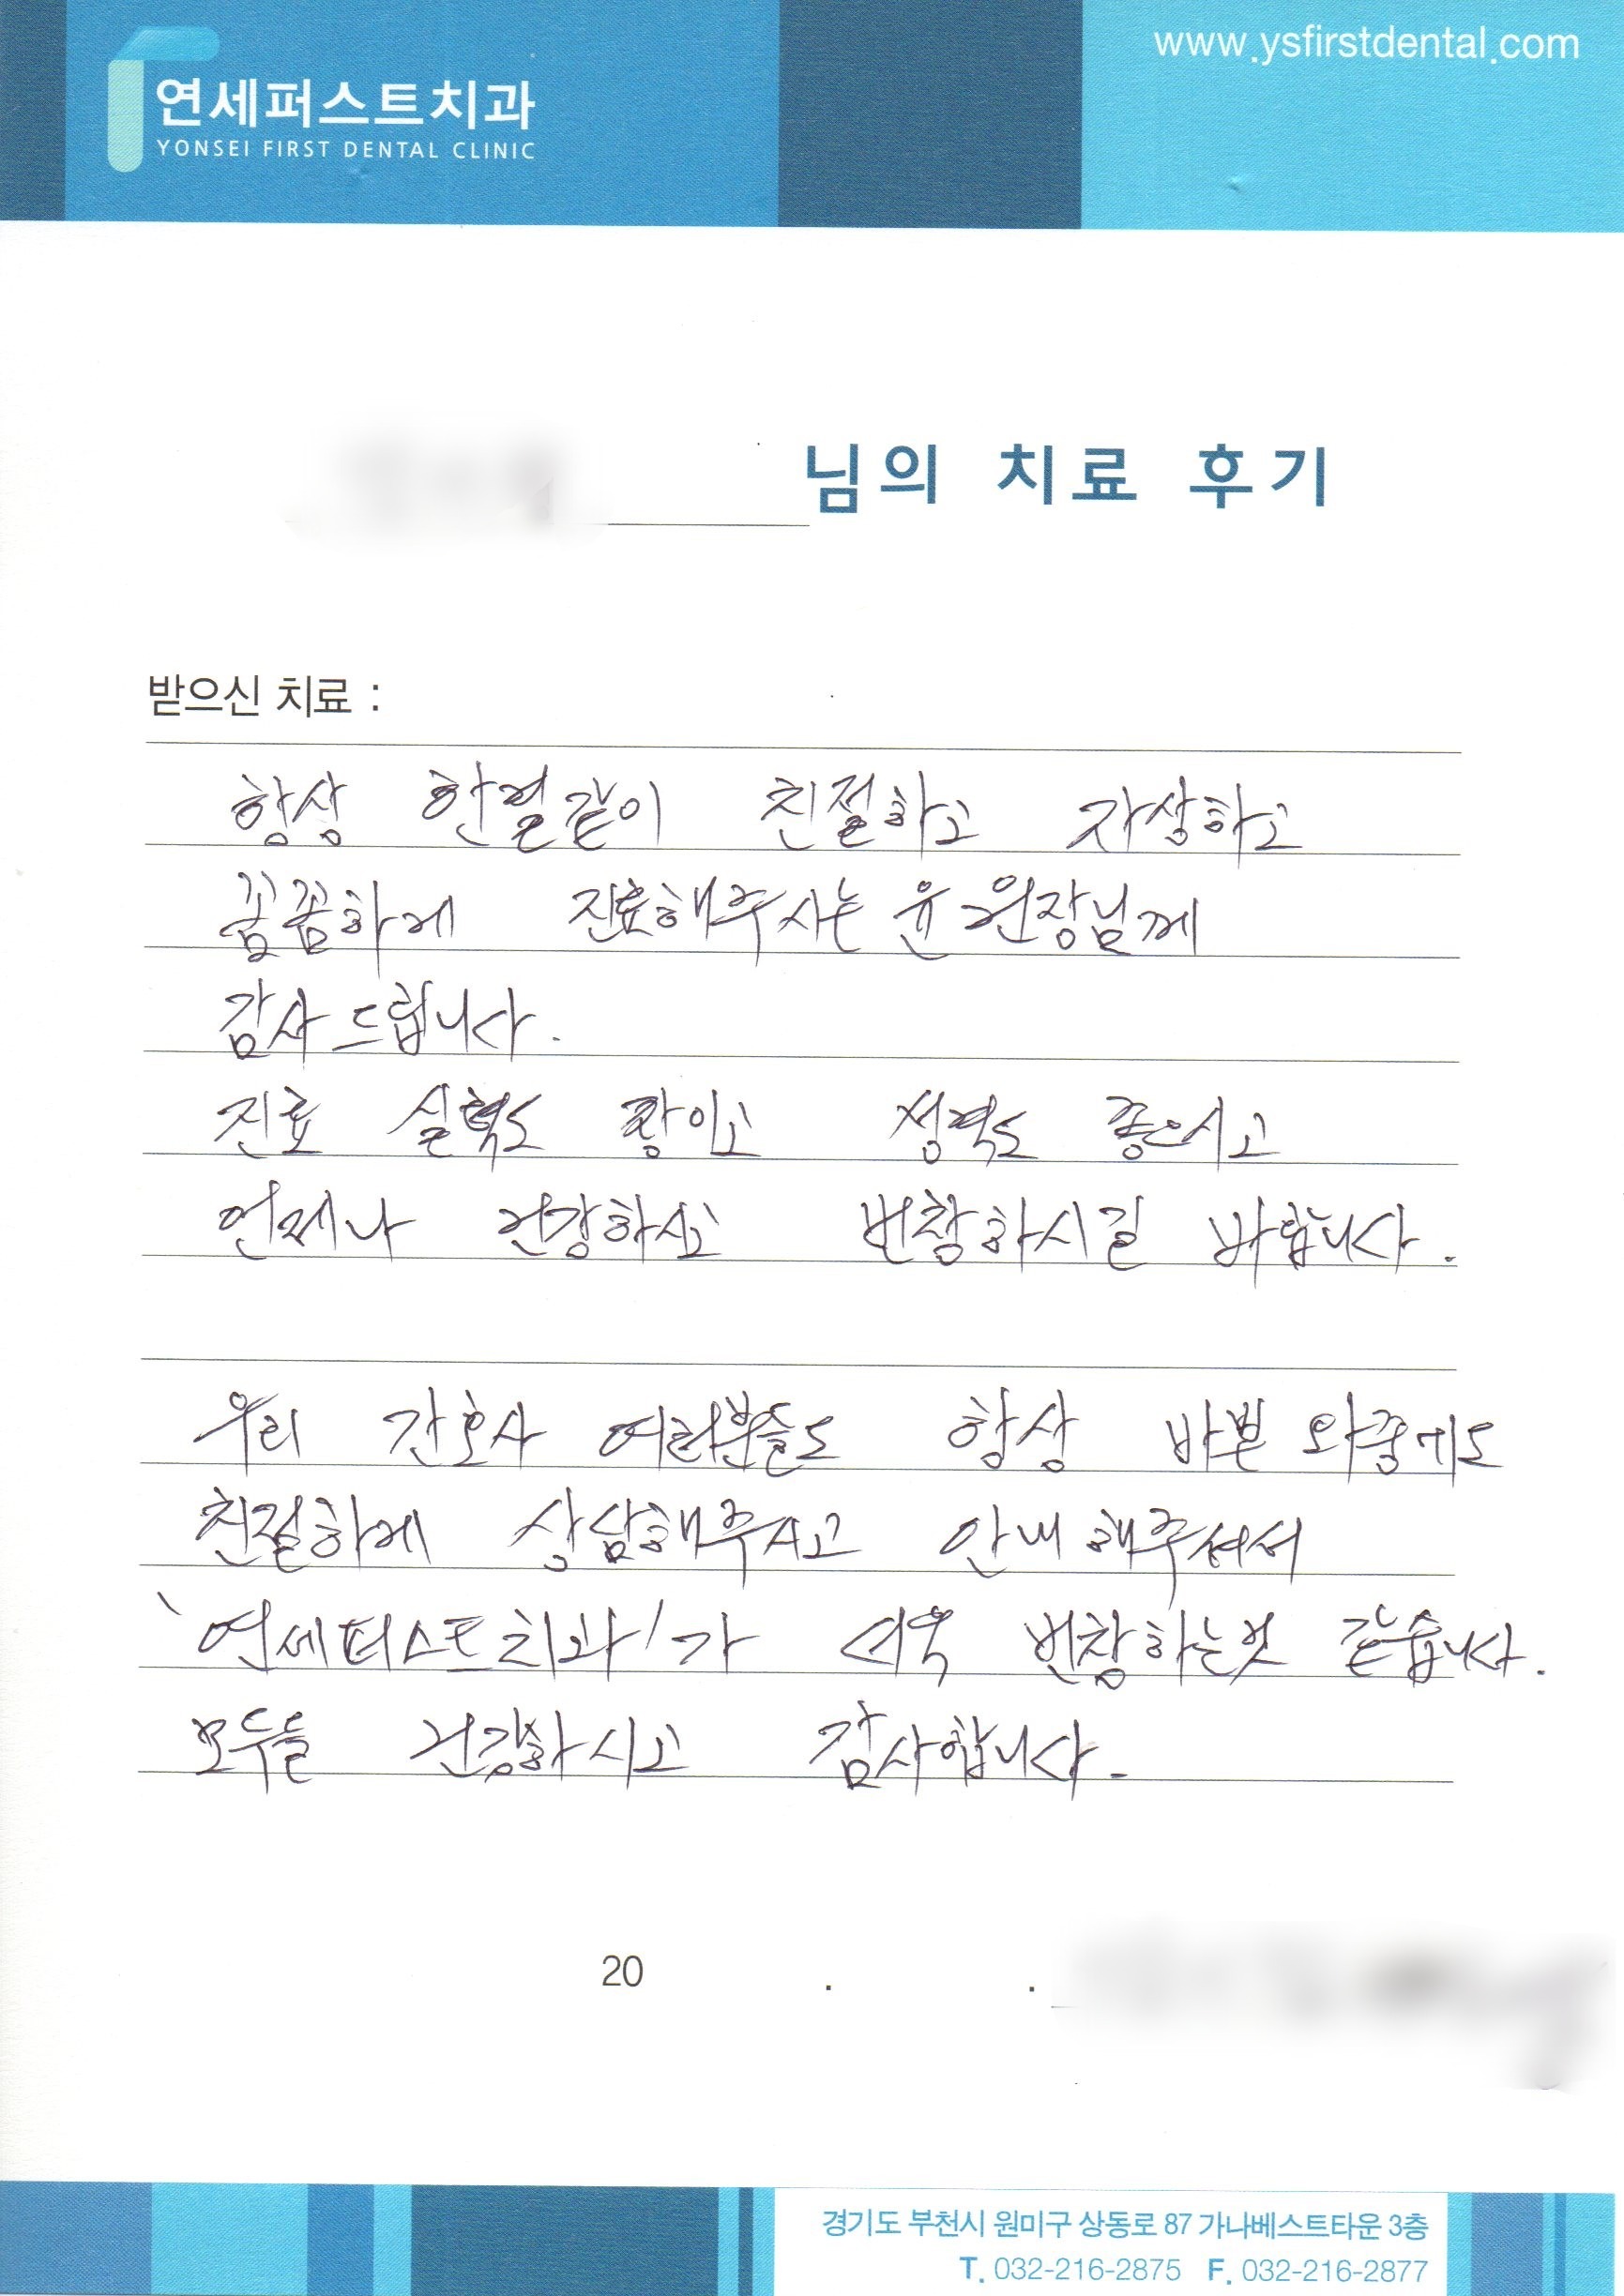 www.ysfirstdental.com
연세퍼스트치과
YONSEI FIRST DENTAL CLINIC
님의 치료 후기
받으신 치료 :
항상 한결같이 친절하고 자상하고
꼼꼼하게 진료해주시는 윤 원장님께
감사드립니다.
진료 실력도 짱이고 성격도 좋으시고
언제나 건강하시고 번창하시길 바랍니다.
우리 간호사 여러분들도 항상 바쁜 와중에도
친절하게 상담해주시고 안내해주셔서
'연세퍼스트치과'가 더욱 번창하는것 같습니다.
모두들 건강하시고 감사합니다.
20 . .
경기도 부천시 원미구 상동로 87 가나베스트타운 3층
T. 032-216-2875 F. 032-216-2877